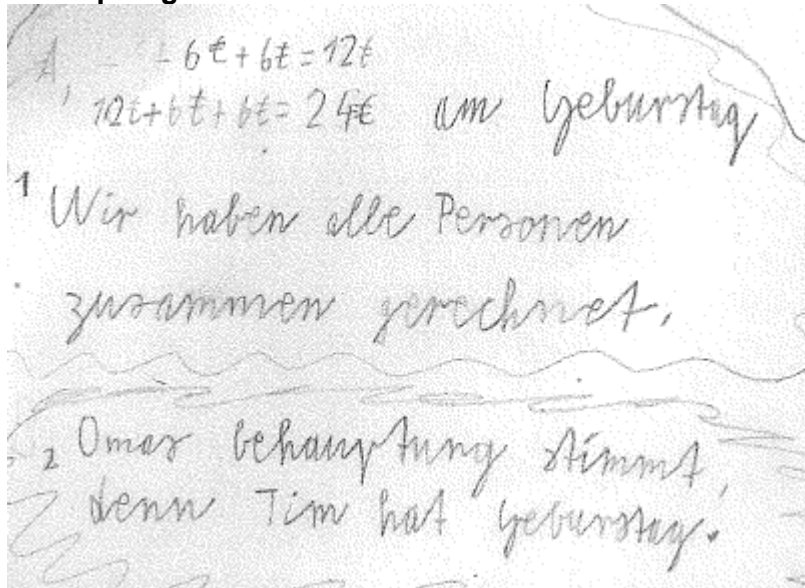 A, 6€+6€=12€
12€+6€+6€=24€ am Geburstag
1 Wir haben alle Personen
zusammen gerechnet.
2 Omas behauptung stimmt,
denn Tim hat geburstag.